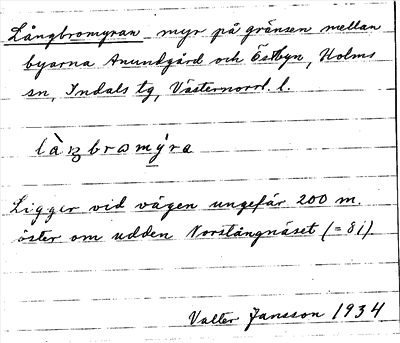 Långbromyran myr på gränsen mellan
byarna Anundgård och Östbyn, Holms
sn, Indals tg, Västernorrl. l.
Ligger vid vägen ungefär 200 m.
öster om udden Norstångnäset (= 8i)
Valter Jansson 1934